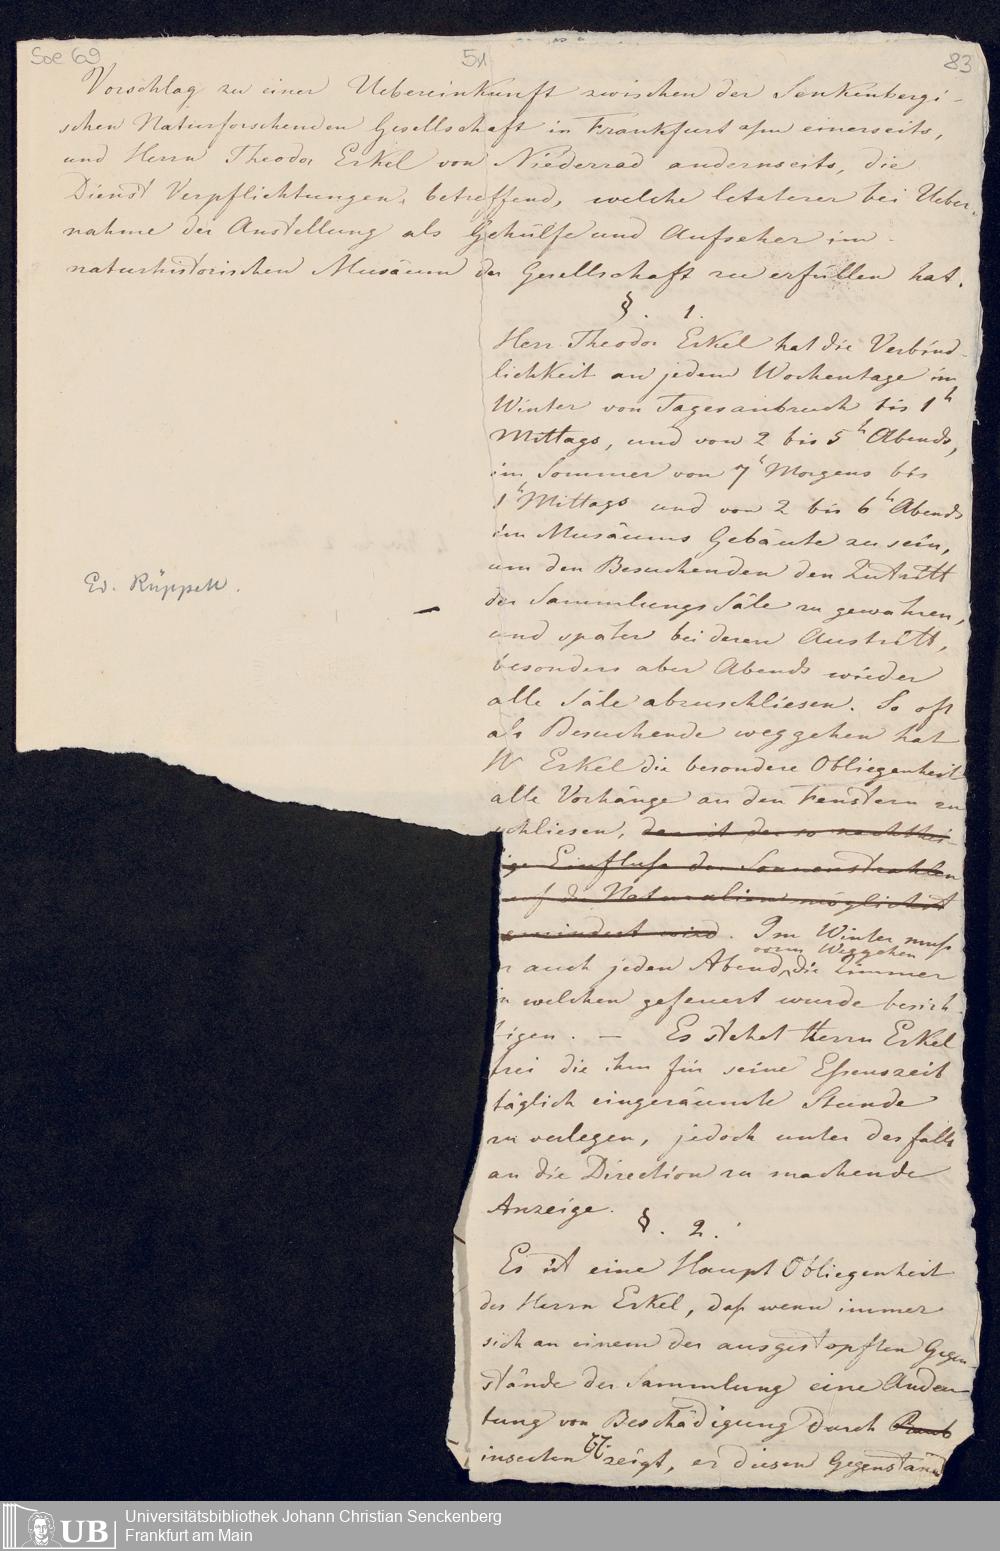 Soe 69
51
83
Vorschlag zu einer Uebereinkunft zwischen der Senkenbergi-
schen Naturforschenden Gesellschaft in Frankfurt a/m einerseits,
und Herrn Theodor Erkel von Niederrad andernseits, die
Dienst Verpflichtungen betreffend, welche letzterer bei Ueber-
nahme der Anstellung als Gehülfe und Aufseher im
naturhistorischen Musäum der Gesellschaft zu erfüllen hat.
§. 1.
Herr Theodor Erkel hat die Verbind-
lichkeit an jedem Wochentage im
Winter von Tagesanbruch bis 1h
Mittags, und von 2 bis 5h Abends,
im Sommer von 7h Morgens bis
1h Mittags und von 2 bis 6h Abends
im Musäums Gebäute zu sein,
um den Besuchenden den Zutritt
der Sammlungs Säle zu gewahren,
und später bei deren Austritt,
besonders aber Abends wieder
alle Säle abzuschliesen. So oft
als Besuchende weggehen hat
H Erkel die besondere Obliegenheit
alle Vorhänge an den Fenstern zu
schliesen, damit der so nachthei-
ige Einfluss der Sonnenstrahlen
auf die Naturalien möglichst
gemindert wird. Im Winter muss
vorm Weggehen
r auch jeden Abend die Zimmer
in welchen gefeuert wurde besich-
tigen. — Es stehet Herrn Erkel
frei die ihm für seine Essenszeit
täglich eingeräumte Stunde
zu verlegen, jedoch unter desfalls
an die Direction zu machende
Anzeige.
Ed. Rüppell.
§. 2.
Es ist eine Haupt Obliegenheit
des Herrn Erkel, dass wenn immer
sich an einem der ausgestopften Gegen-
stände der Sammlung eine Andeu-
tung von Beschädigung durch Raub
insecten zeigt, er diesen Gegenstand
UB
Universitätsbibliothek Johann Christian Senckenberg
Frankfurt am Main